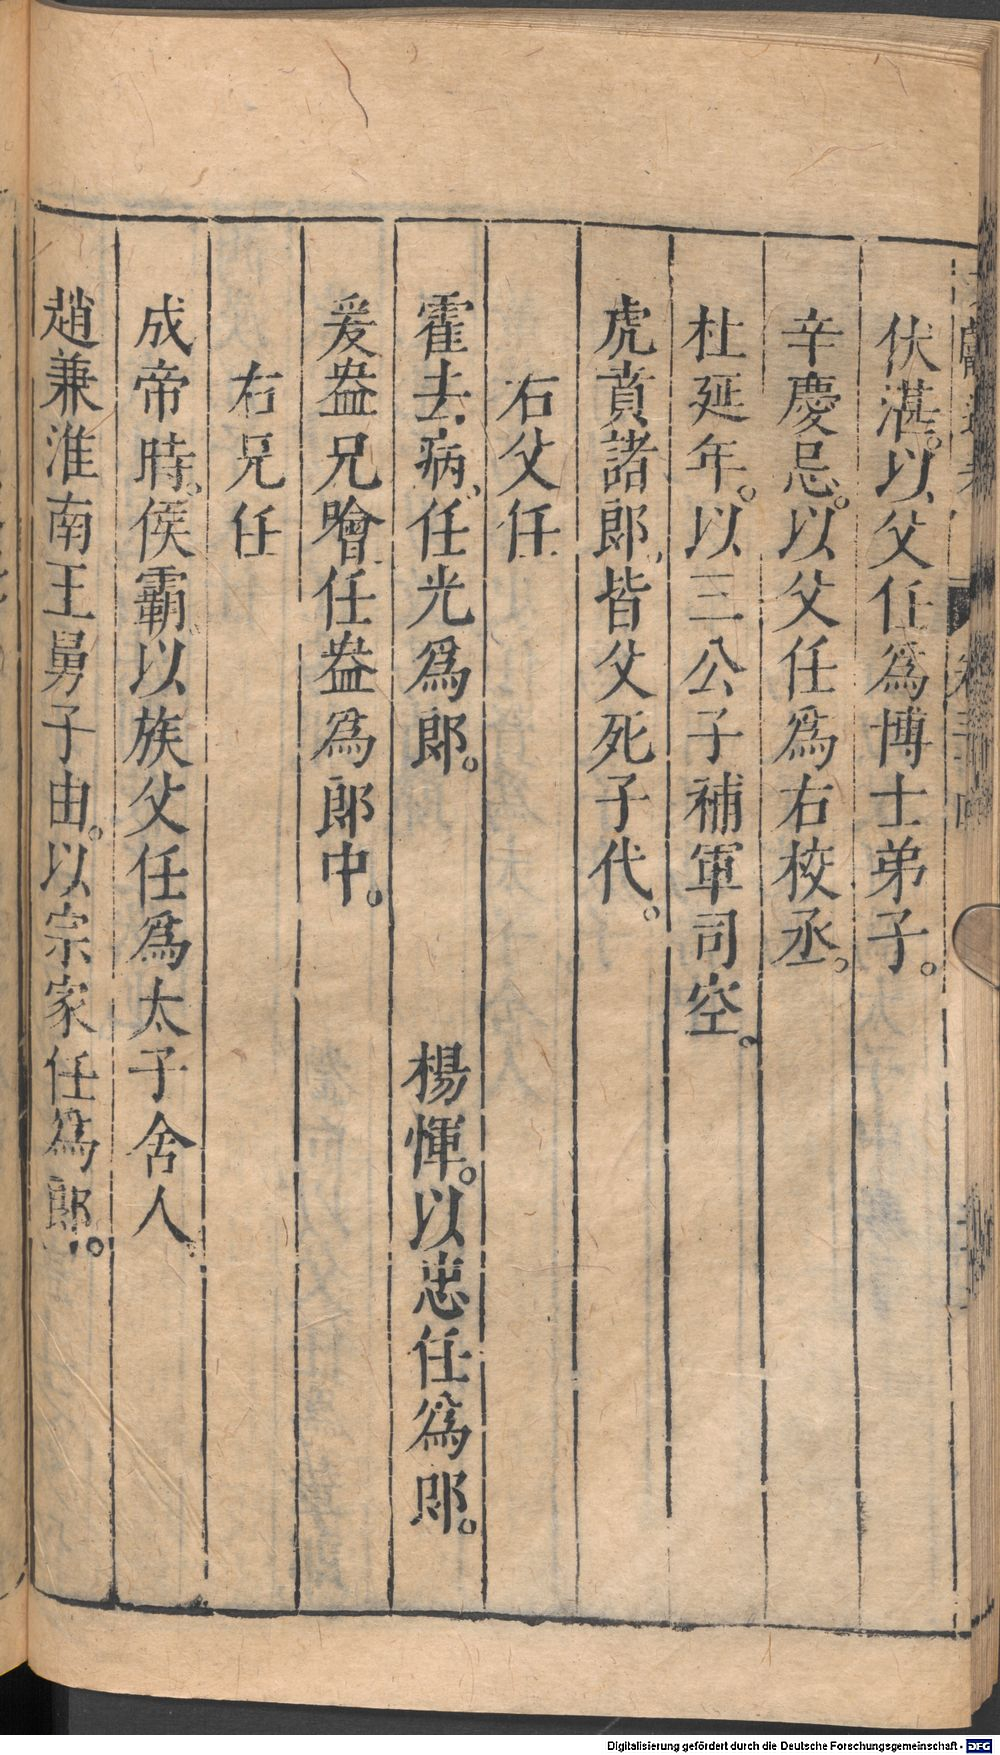 伏湛。以父任爲博士弟子。
辛慶忌。以父任爲右校丞。
杜延年。以三公子補軍司空。
虎賁諸郎、皆父死子代。
右父任
霍去病、任光爲郎。 楊惲。以忠任爲郎。
爰盎兄噲任盎爲郎中。
右兄任
成帝時、侯霸以族父任爲太子舍人
趙兼淮南王舅子由。以宗家任爲郎。
Digitalisierung gefördert durch die Deutsche Forschungsgemeinschaft - DFG